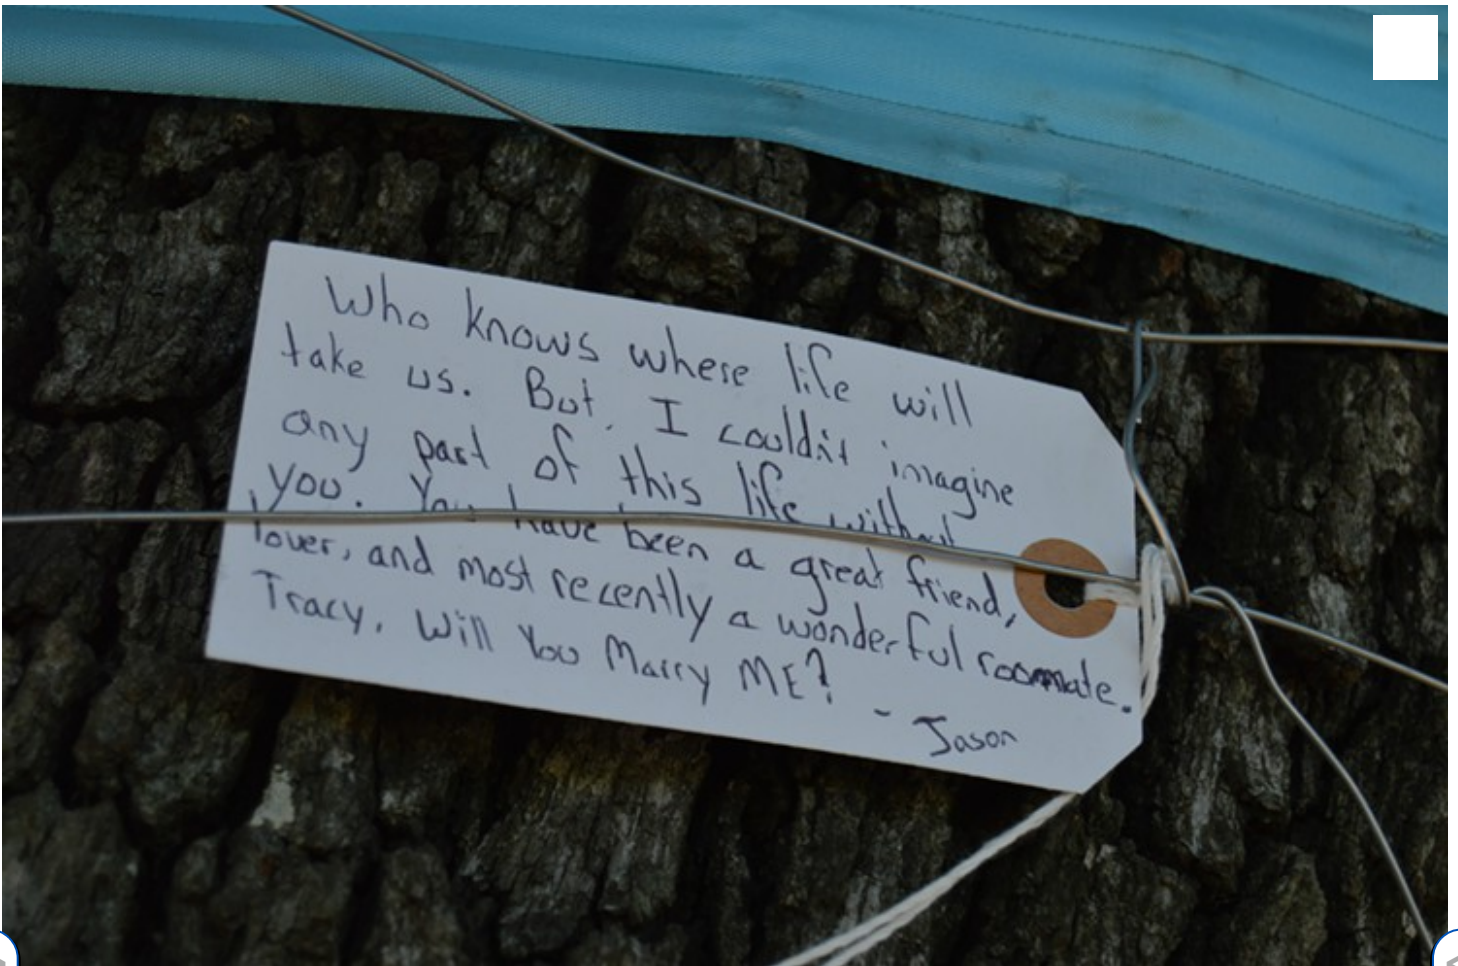 Who knows where life will
take us. But, I couldn't imagine
any part of this life without
you. You have been a great friend,
lover, and most recently a wonderful roommate.
Tracy, Will You Marry ME?
- Jason